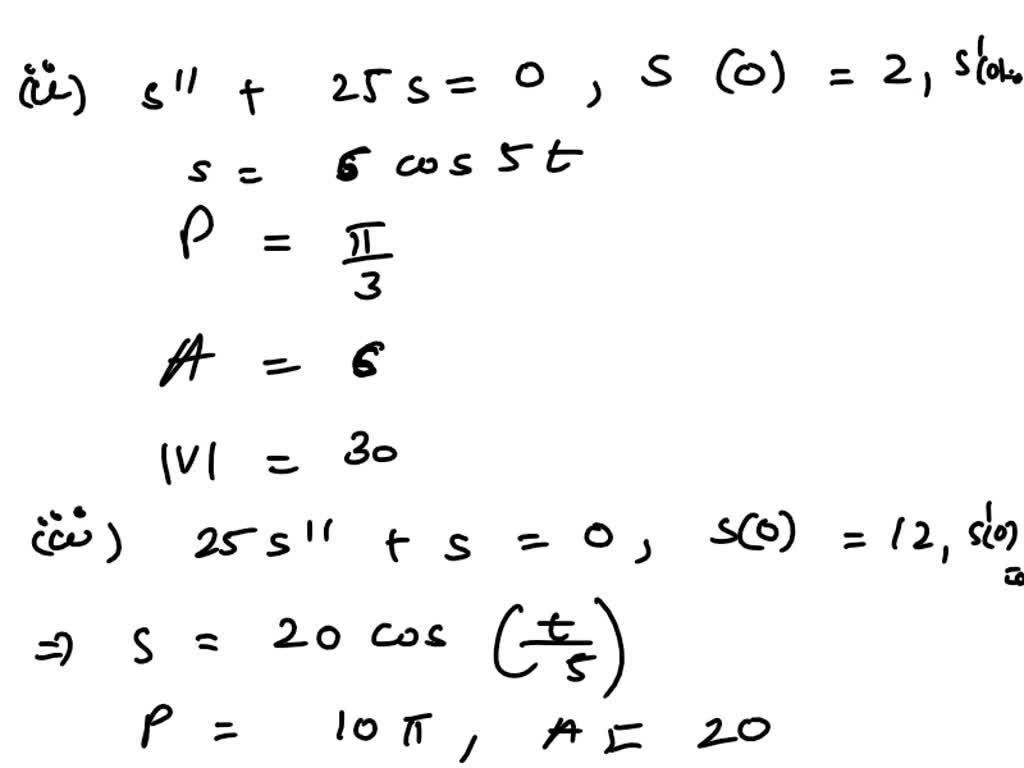 (ii) s'' + 25 s = 0 , S (0) = 2, s'(0)=0
s = 6 cos 5t
P = π/3
A = 6
|V| = 30
(iii) 25 s'' + s = 0 , s(0) = 12, s'(0) =0
⇒ S = 20 cos (t/5)
P = 10 π , A = 20